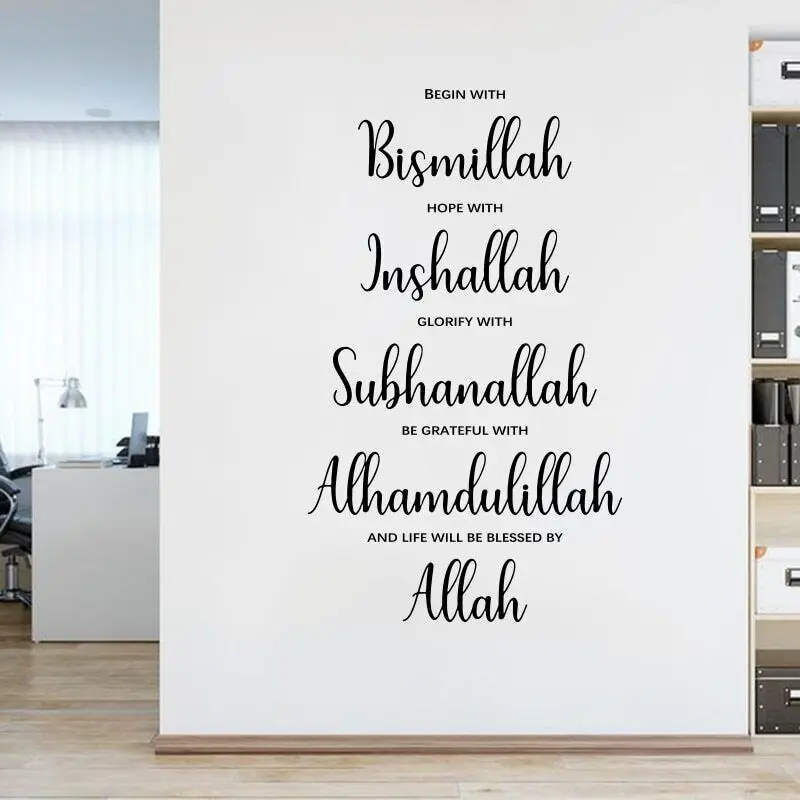 BEGIN WITH
Bismillah
HOPE WITH
Inshallah
GLORIFY WITH
Subhanallah
BE GRATEFUL WITH
Alhamdulillah
AND LIFE WILL BE BLESSED BY
Allah